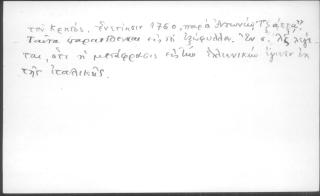 τοῦ Κρητός, Ἐνετίησιν 1760, παρὰ Ἀντωνίῳ Τζάττᾳ".
Ταῦτα παρατίθενται εἰς τὸ ἐξώφυλλον. Ἐν σ. λέγε
ται, ὅτι ἡ μετάφρασις εἰς τὴν Ἑλληνικὴν ἐγένετο ἐκ
τῆς ἰταλικῆς.